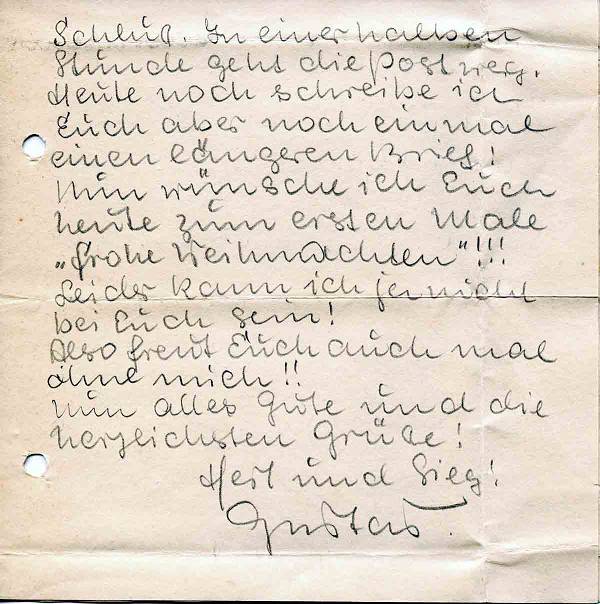 Schluß. In einer halben
Stunde geht die Post weg.
Heute noch schreibe ich
Euch aber noch einmal
einen längeren Brief!
Nun wünsche ich Euch
heute zum ersten Male
„frohe Weihnachten"!!!
Leider kann ich ja nicht
bei Euch sein!
Also freut Euch auch mal
ohne mich!!
Nun alles Gute und die
herzlichsten Grüße!
Heil und Sieg!
Gustav.